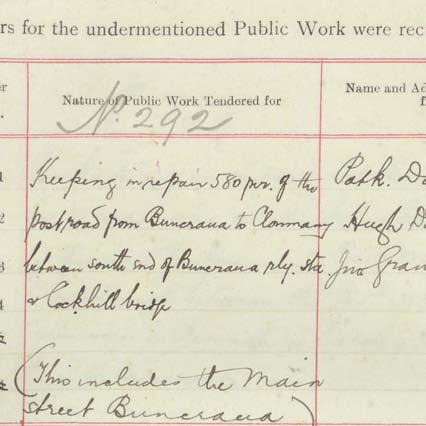 rs for the undermentioned Public Work were rec
er Nature of Public Work Tendered for Name and Ad
No. 292
1 Keeping in repair 580 per. of the Patk. Do
2 post road from Buncrana to Clonmany Hugh D
3 between south end of Buncrana rly. sta. Jno Gran
4 & Cockhill bridge
(This includes the Main
street Buncrana)